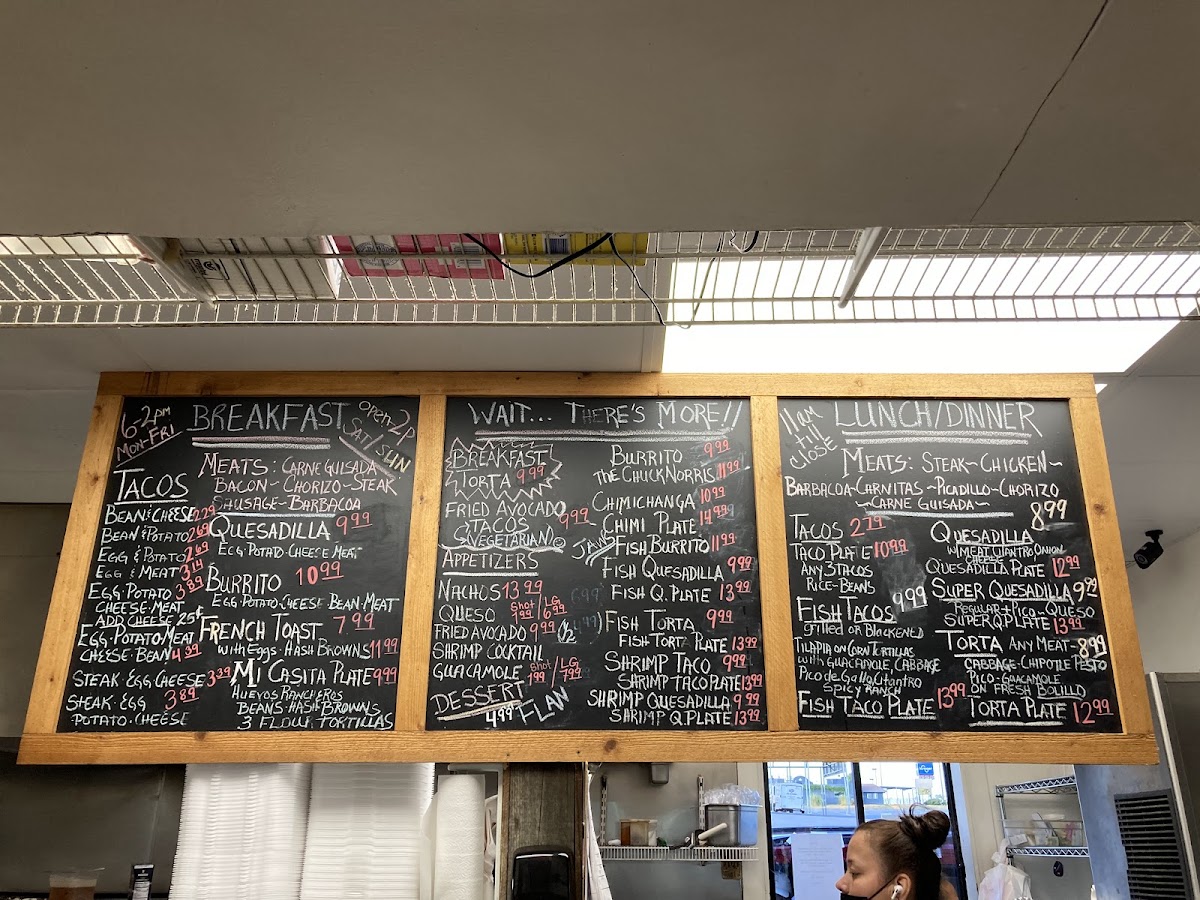 6-2pm
Mon-Fri
BREAKFAST
Open 2P
Sat/Sun
TACOS
BEAN & CHEESE 2.29
BEAN & POTATO 2.69
EGG & POTATO 2.69
EGG & MEAT 3.14
EGG·POTATO 3.89
CHEESE·MEAT
ADD CHEESE 25¢
EGG·POTATO MEAT
CHEESE·BEAN 4.39
STEAK·EGG CHEESE 3.39
STEAK·EGG 3.84
POTATO·CHEESE
MEATS: CARNE GUISADA
BACON~ CHORIZO~STEAK
SAUSAGE~BARBACOA
QUESADILLA 9.99
EGG·POTATO·CHEESE MEAT
BURRITO 10.99
EGG·POTATO·CHEESE·BEAN·MEAT
FRENCH TOAST 7.99
with Eggs·HASH BROWNS 11.99
MI CASITA PLATE 9.99
HUEVOS RANCHEROS
BEANS·HASH BROWNS
3 FLOUR TORTILLAS
WAIT... THERE'S MORE!!
BREAKFAST
TORTA 9.99
FRIED AVOCADO
TACOS 9.99
VEGETARIAN
APPETIZERS
NACHOS 13.99
QUESO Shot 1.99 / LG 6.99
FRIED AVOCADO 9.99
SHRIMP COCKTAIL
GUACAMOLE Shot 1.99 / LG 7.99
DESSERT
4.99 FLAN
BURRITO 9.99
THE CHUCK NORRIS 11.99
CHIMICHANGA 10.99
CHIMI PLATE 14.99
JAWS
FISH BURRITO 11.99
FISH QUESADILLA 9.99
FISH Q. PLATE 13.99
FISH TORTA 9.99
FISH TORT. PLATE 13.99
SHRIMP TACO 9.99
SHRIMP TACO PLATE 13.99
SHRIMP QUESADILLA 9.99
SHRIMP Q.PLATE 13.99
11am
till
close
LUNCH/DINNER
MEATS: STEAK~CHICKEN~
BARBACOA~CARNITAS~PICADILLO~CHORIZO
~CARNE GUISADA~
TACOS 2.79
TACO PLATE 10.99
ANY 3 TACOS
RICE-BEANS
FISH TACOS 9.99
grilled or Blackened
TILAPIA on CORN TORTILLAS
with GUACAMOLE, CABBAGE
Pico de Gallo, Cilantro
SPICY RANCH
FISH TACO PLATE 13.99
QUESADILLA 8.99
W/MEAT CILANTRO ONION
CHEESE
QUESADILLA PLATE 12.99
SUPER QUESADILLA 9.99
REGULAR + PICO-QUESO
SUPER Q PLATE 13.99
TORTA ANY MEAT~ 8.99
CABBAGE-CHIPOTLE PESTO
PICO-GUACAMOLE
ON FRESH BOLILLO
TORTA PLATE 12.99